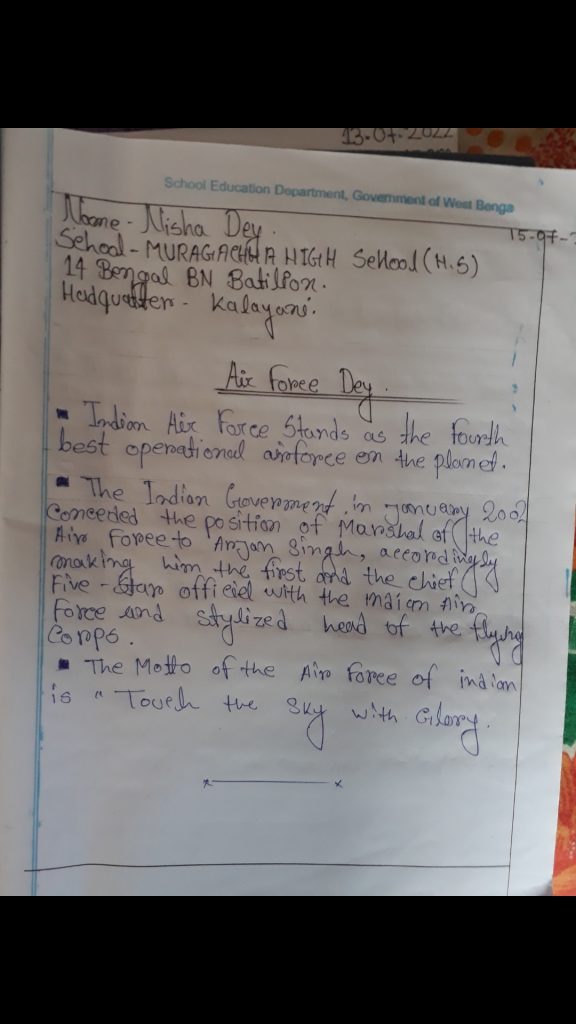 13-07-2022
School Education Department, Government of West Benga
15-07-
Name - Nisha Dey.
School - MURAGACHHA HIGH School (H.S)
14 Bengal BN Batillon.
Hadquatter - Kalayani.
Air Force Dey.
Indian Air Force Stands as the fourth
best operational airforce on the planet.
The Indian Goverment, in January 2002
Conceeded the position of Marshal of the
Air Force to Arjan Singh, accordingly
making him the first and the chief
Five - Star official with the Indian Air
Force and stylized head of the flying
Corps.
The Motto of the Air Force of indian
is " Touch the Sky with Glory.